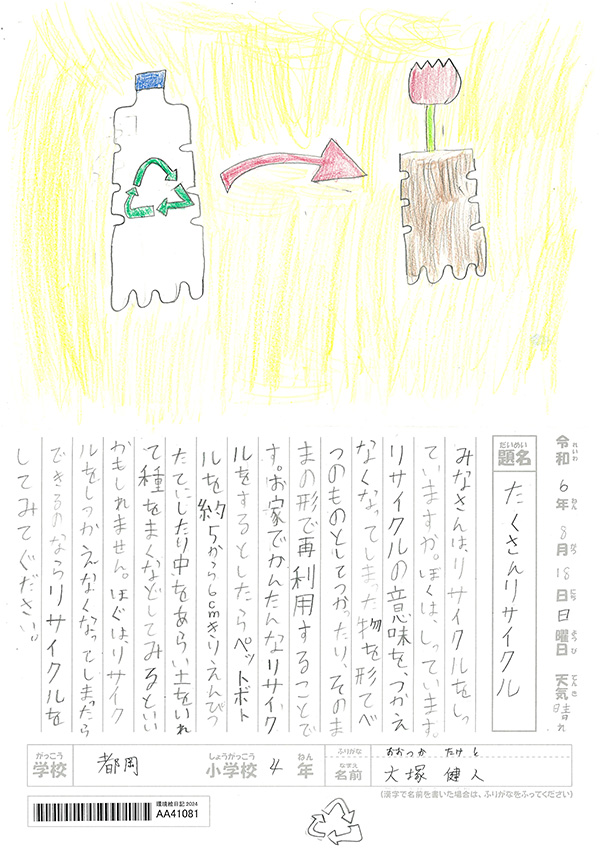 令和6年8月18日日曜日 天気晴れ
題名 たくさんリサイクル
みなさんは、リサイクルをしっ
ていますか。ぼくは、しっています。
リサイクルの意味を、つかえ
なくなってしまった物を形でべ
つのものとしてつかったり、そのま
まの形で再利用することで
す。お家でかんたんなリサイク
ルをするとしたらペットボト
ルを約5から6cmきりえんぴつ
たてにしたり中をあらい土をいれ
て種をまくなどしてみるといい
かもしれません。ぼくは、リサイク
ルをしつかえなくなってしまったら
できるのならリサイクルを
してみてください。
学校 都岡 小学校 4年 名前 おおつか たけと 大塚 健人
(漢字で名前を書いた場合は、ふりがなをふってください)
環境絵日記2024
AA41081